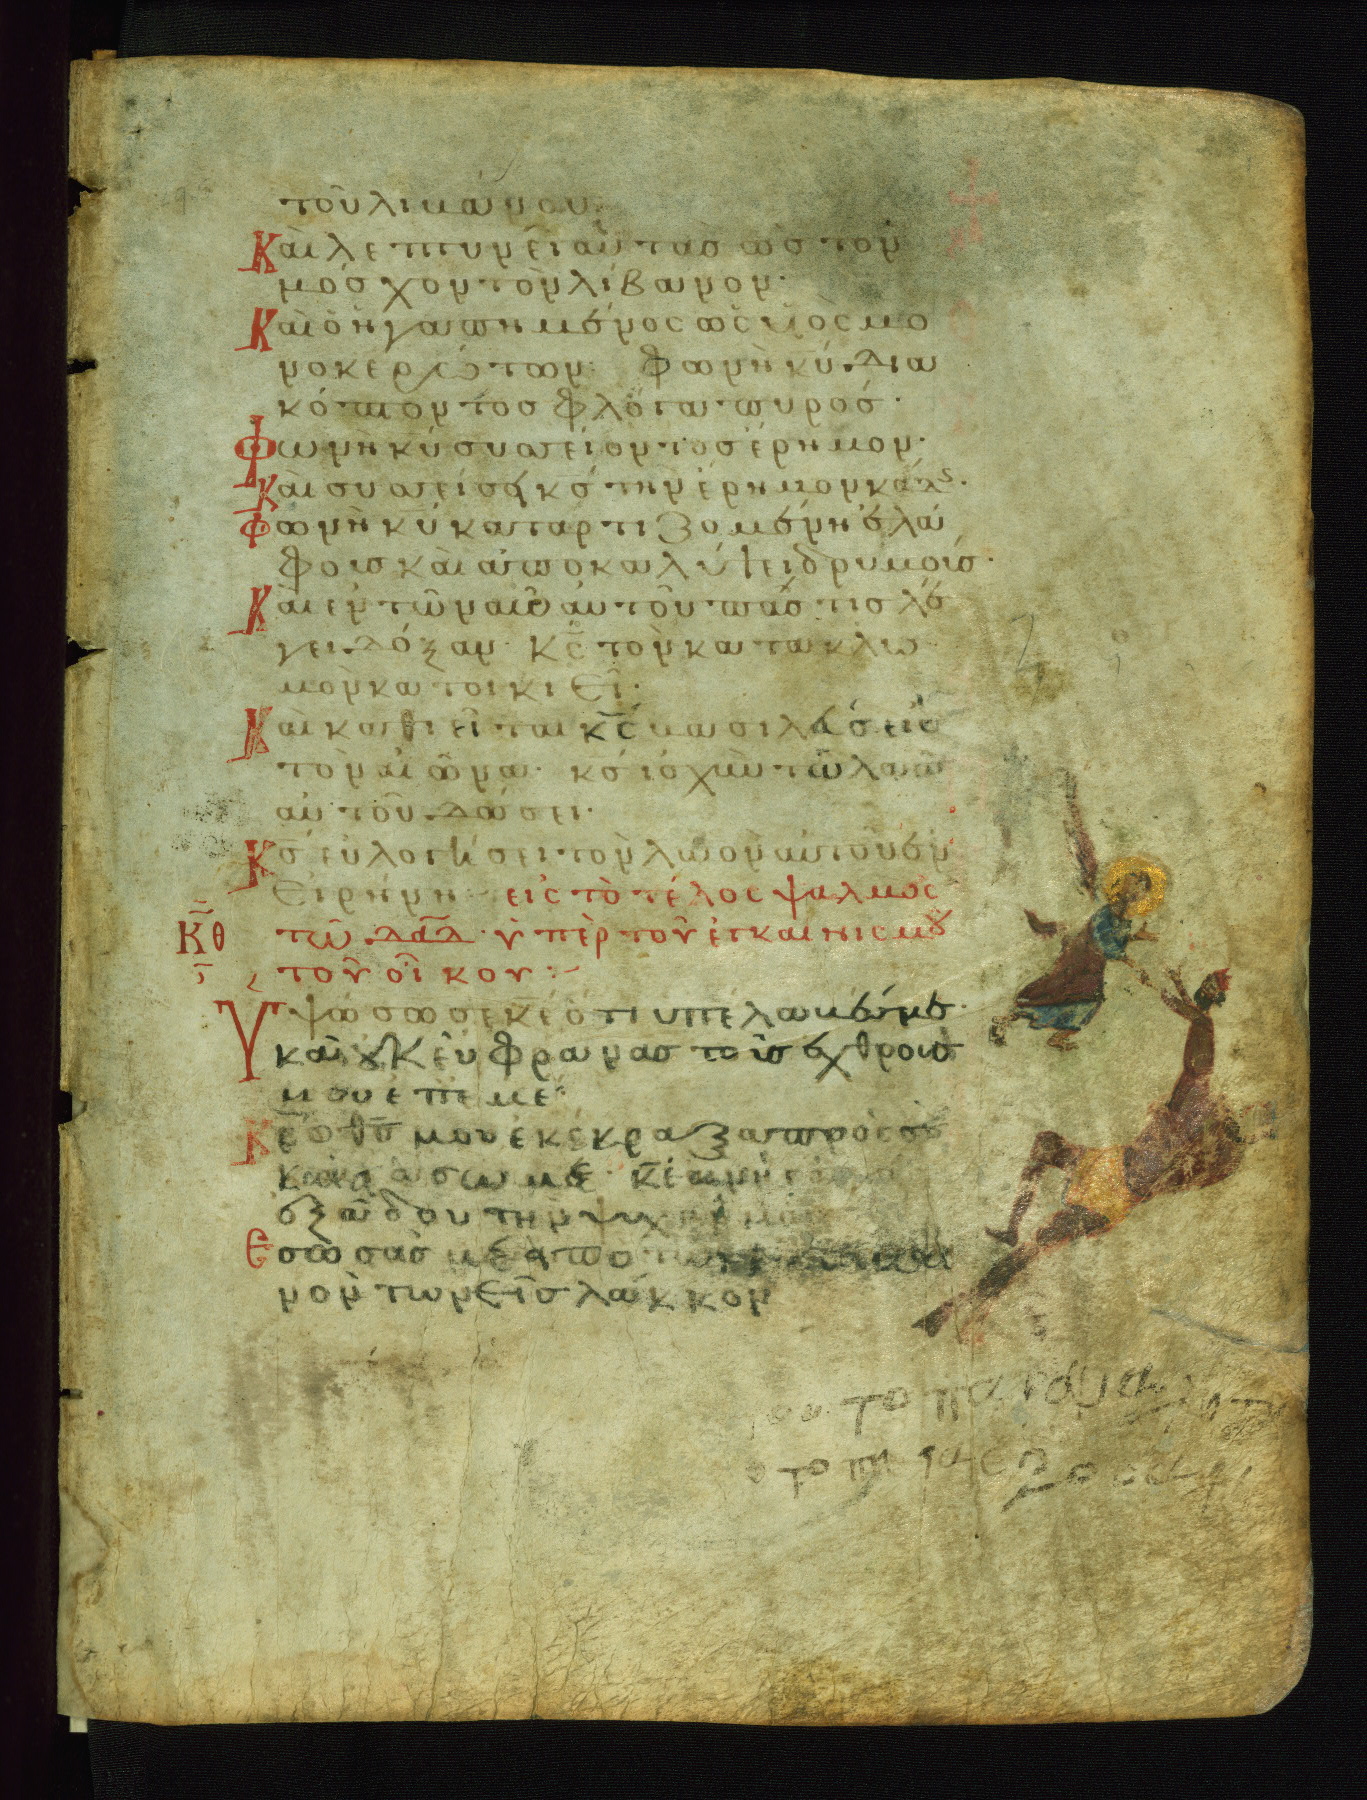 τοῦ λιβάνου·
Καὶ λεπτυνεῖ αὐτὰσ ὡσ τὸν
μόσχον τὸν λίβανον·
Καὶ ὁ ἠγαπημένος ὡς υἱὸς μο
νοκερώτων· Φωνὴ κ̅υ̅ δια
κόπτοντοσ φλόγα πυρόσ·
Φωνὴ κ̅υ̅ συσσείοντοσ ἔρημον·
Καὶ συσσείσει κ̅ς̅ τὴν ἔρημον κάδης·
Φωνὴ κ̅υ̅ καταρτιζομένη ἐλά
φουσ καὶ ἀποκαλύψει δρυμούσ·
Καὶ ἐν τῶ ναῶ αὐτοῦ πᾶσ τισ λέ
γει δόξαν· Κ̅ς̅ τὸν κατακλυσ
μὸν κατοικιεῖ·
Καὶ καθιεῖται κ̅ς̅ βασιλεὺς εἰς
τὸν αἰῶνα· κ̅ς̅ ἰσχὺν τῶ λαῶ
αὐτοῦ δώσει·
Κ̅ς̅ εὐλογήσει τὸν λαὸν αὐτοῦ ἐν
εἰρήνη· εἰς τὸ τέλος ψαλμὸς
τῶ δα̅δ̅· ὑπὲρ τοῦ ἐγκαινισμοῦ
κ̅θ̅
τοῦ οἴκου:
Υψώσω σε κ̅ε̅ ὅτι ὑπέλαβές με·
καὶ οὐκ εὔφρανας τοὺσ ἐχθρούσ
μου ἐπ' ἐμέ·
Κ̅ε̅ ὁ θ̅ς̅ μου ἐκέκραξα πρὸς σὲ
καὶ ἰάσω με· κ̅ε̅ ἀνήγαγεσ
ἐξ ἅδου τὴν ψυχήν μου·
Εσωσάσ με ἀπὸ τῶν καταβαι
νόντων εἰσ λάκκον